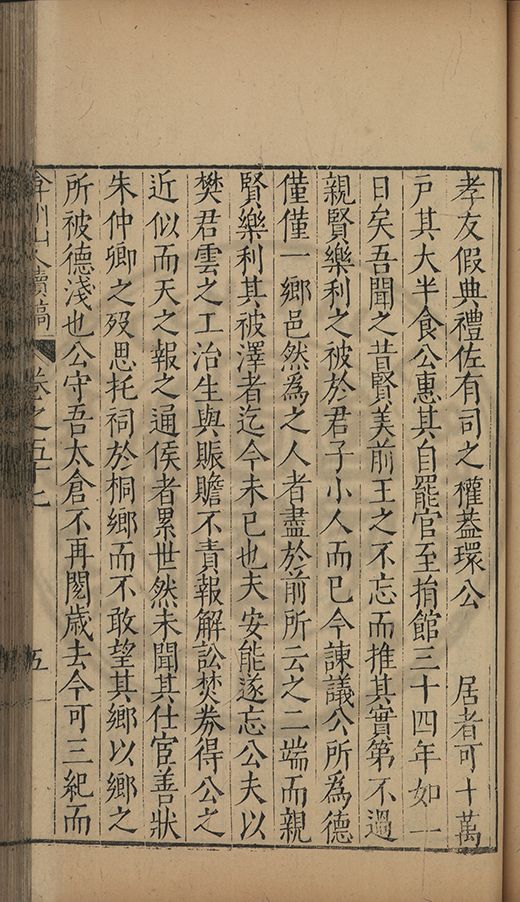 孝友假典禮佐有司之權葢環公　　居者可十萬
戸其大半食公惠其自罷官至捐館三十四年如一
日矣吾聞之昔賢美前王之不忘而推其實第不過
親賢樂利之被於君子小人而已今諫議公所為德
僅僅一鄉邑然為之人者盡於前所云之二端而親
賢樂利其被澤者迄今未已也夫安能遂忘公夫以
樊君雲之工治生與賑贍不責報解訟焚券得公之
近似而天之報之通侯者累世然未聞其仕宦善狀
朱仲卿之歿思托祠於桐鄉而不敢望其鄉以鄉之
所被德淺也公守吾太倉不再閲歳去今可三紀而
弇州山人續稿　卷之五十七　五